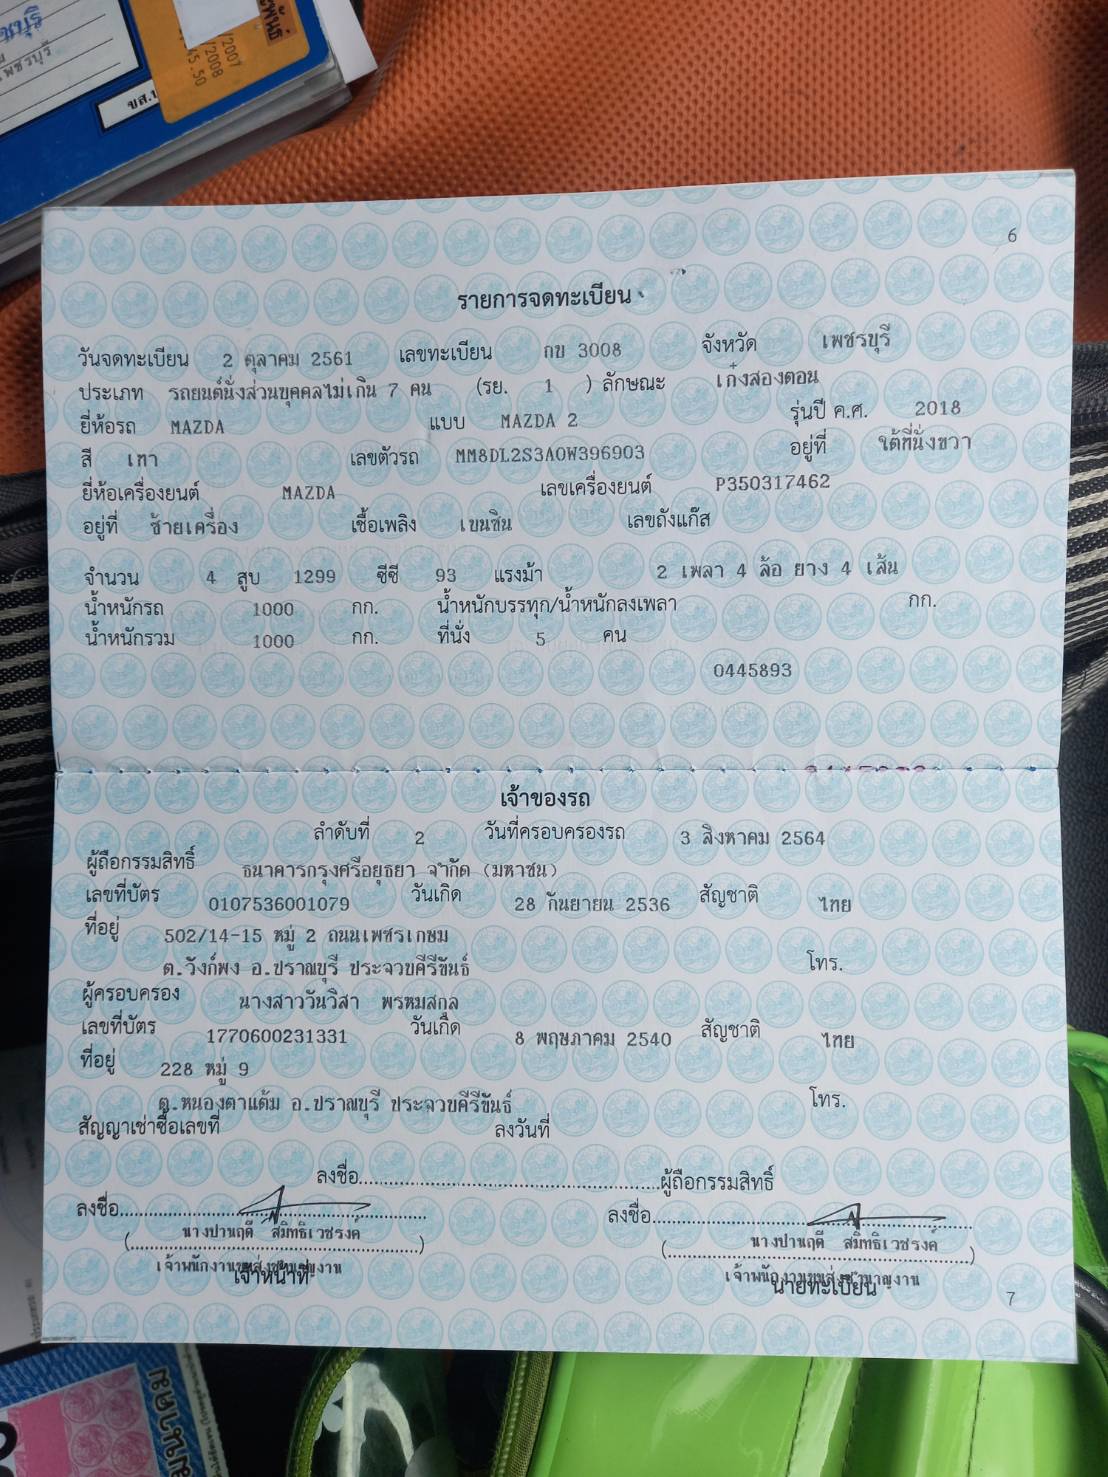 พันธ์
/2007
/2008
45.50
เพชรบุรี
ขส.บ
6
รายการจดทะเบียน
วันจดทะเบียน 2 ตุลาคม 2561 เลขทะเบียน กข 3008 จังหวัด เพชรบุรี
ประเภท รถยนต์นั่งส่วนบุคคลไม่เกิน 7 คน (รย. 1 ) ลักษณะ เก๋งสองตอน
ยี่ห้อรถ MAZDA แบบ MAZDA 2 รุ่นปี ค.ศ. 2018
สี เทา เลขตัวรถ MM8DL2S3A0W396903 อยู่ที่ ใต้ที่นั่งขวา
ยี่ห้อเครื่องยนต์ MAZDA เลขเครื่องยนต์ P350317462
อยู่ที่ ซ้ายเครื่อง เชื้อเพลิง เบนซิน เลขถังแก๊ส
จำนวน 4 สูบ 1299 ซีซี 93 แรงม้า 2 เพลา 4 ล้อ ยาง 4 เส้น
น้ำหนักรถ 1000 กก. น้ำหนักบรรทุก/น้ำหนักลงเพลา กก.
น้ำหนักรวม 1000 กก. ที่นั่ง 5 คน
0445893
เจ้าของรถ
ลำดับที่ 2 วันที่ครอบครองรถ 3 สิงหาคม 2564
ผู้ถือกรรมสิทธิ์ ธนาคารกรุงศรีอยุธยา จำกัด (มหาชน)
เลขที่บัตร 0107536001079 วันเกิด 28 กันยายน 2536 สัญชาติ ไทย
ที่อยู่ 502/14-15 หมู่ 2 ถนนเพชรเกษม
ต.วังก์พง อ.ปราณบุรี ประจวบคีรีขันธ์ โทร.
ผู้ครอบครอง นางสาววันวิสา พรหมสกุล
เลขที่บัตร 1770600231331 วันเกิด 8 พฤษภาคม 2540 สัญชาติ ไทย
ที่อยู่ 228 หมู่ 9
ต.หนองตาแต้ม อ.ปราณบุรี ประจวบคีรีขันธ์ โทร.
สัญญาเช่าซื้อเลขที่ ลงวันที่
ลงชื่อ ผู้ถือกรรมสิทธิ์
ลงชื่อ ลงชื่อ
(นางปานฤดี สมิทธิเวชรงค์) (นางปานฤดี สมิทธิเวชรงค์)
เจ้าพนักงานขนส่งชำนาญงาน เจ้าพนักงานขนส่งชำนาญงาน
เจ้าหน้าที่ นายทะเบียน
7